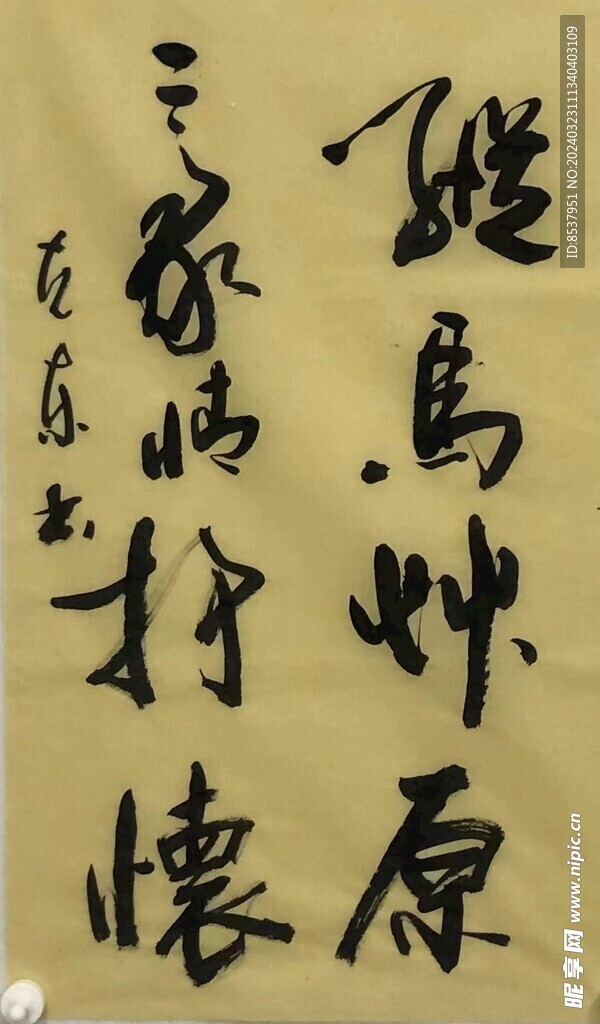 縱馬艸原
豪情抒懷
克东书
ID:8537951 NO:20240323111340403109
昵享网 www.nipic.cn